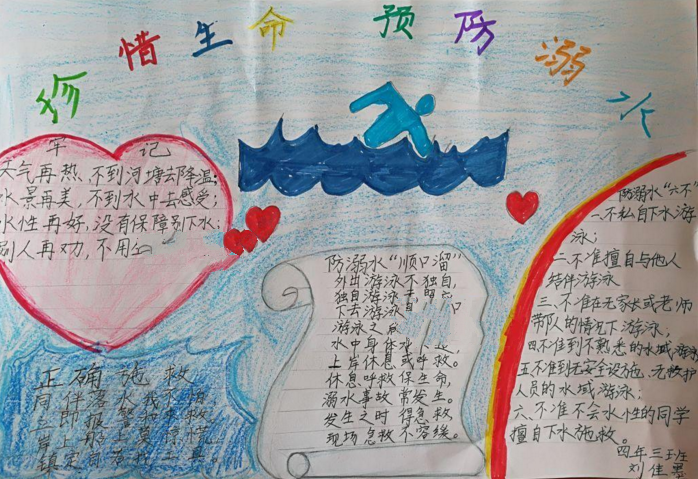 珍惜生命 预防溺水
牢记
天气再热,不到河塘去降温;
水景再美,不到水中去感受;
水性再好,没有保障别下水;
别人再劝,不用
正确施救
同伴落水我不慌
立即报警
岸上
镇定
防溺水“顺口溜”
外出游泳不独自,
独自游泳
下去游泳
游泳之
水中身体
上岸休息或呼救。
休息呼救保生命,
溺水事故常发生。
发生之时得急救
现场急救不容缓。
防溺水“六不”
一不私自下水游
泳;
二、不准擅自与他人
结伴游泳
三、不准在无家长或老师
带队的情况下游泳;
四不准到不熟悉的水域游泳
五不准到无安全设施、无救护
人员的水域游泳;
六、不准不会水性的同学
擅自下水施救。
四年三班
刘佳